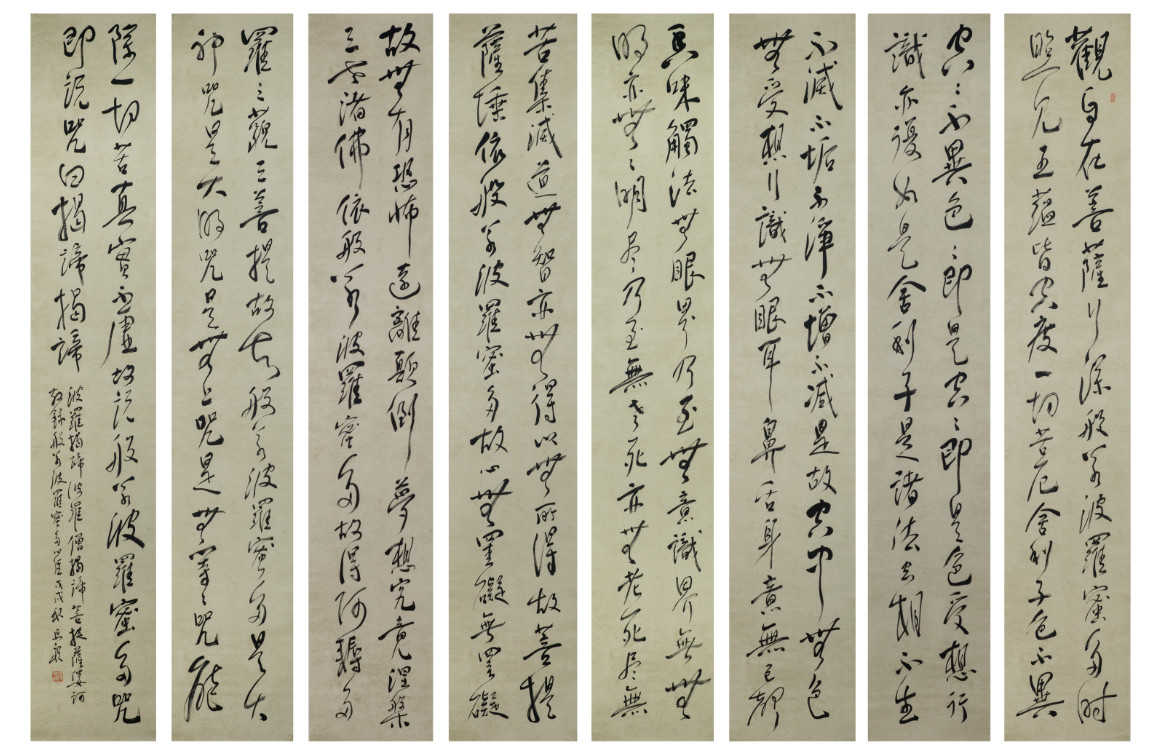 觀自在菩薩行深般若波羅蜜多時
照見五蘊皆空度一切苦厄舍利子色不異
空〻不異色〻即是空〻即是色受想行
識亦復如是舍利子是諸法空相不生
不滅不垢不淨不增不減是故空中無色
無受想行識無眼耳鼻舌身意無色聲
香味觸法無眼界乃至無意識界無無
明亦無〻明盡乃至無老死亦無老死盡無
苦集滅道無智亦無得以無所得故菩提
薩埵依般若波羅蜜多故心無罣礙無罣礙
故無有恐怖遠離顛倒夢想究竟涅槃
三世諸佛依般若波羅蜜多故得阿耨多
羅三藐三菩提故知般若波羅蜜多是大
神咒是大明咒是無上咒是無等〻咒能
除一切苦真實不虛故說般若波羅蜜多咒
即說咒曰揭諦揭諦
波羅揭諦波羅僧揭諦菩提薩婆訶
敬錄般若波羅蜜多心經戊戌秋